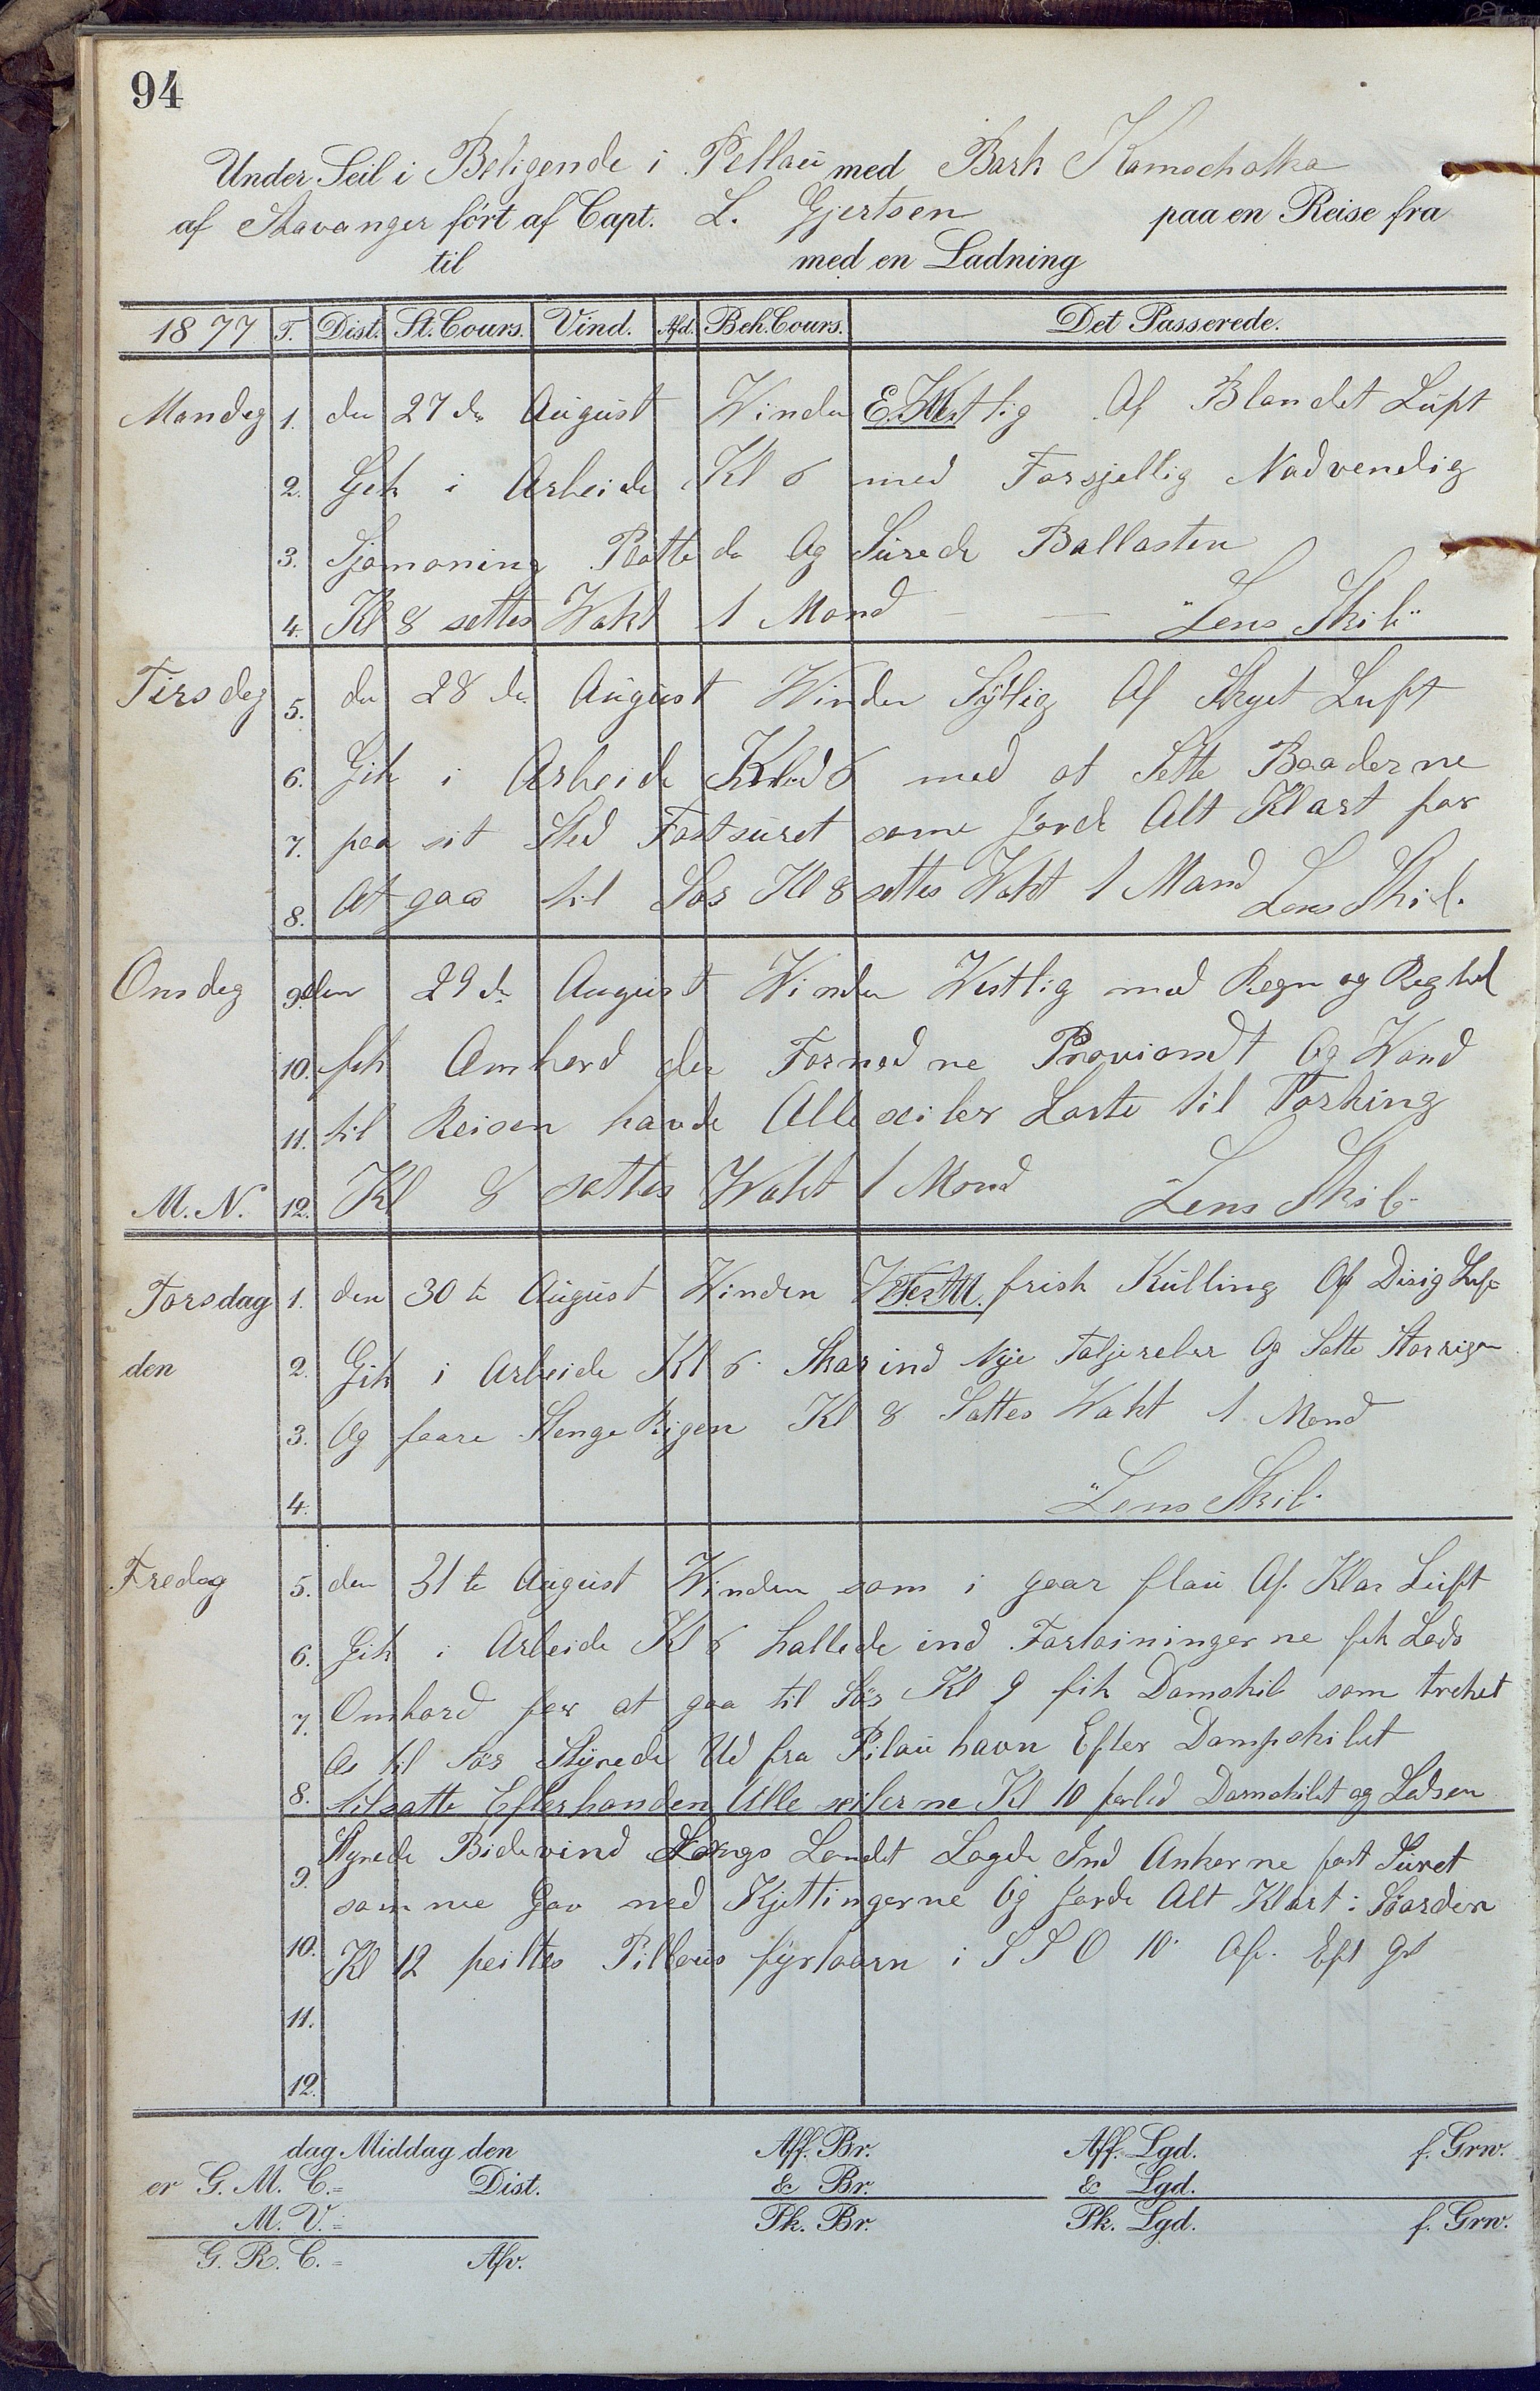 94
Under Seil i Beligende i Pellau med Bark Kamschatka
af Stavanger ført af Capt. L. Gjertsen paa en Reise fra
til med en Ladning
1877 T. Dist. St. Cours. Vind. Afd. Beh. Cours. Det Passerede.
Mandag 1. den 27de August Winden Westlig Af Blandet Luft
2. Gik i Arbeide Kl 6 med Forsjellig Nødvendig
3. Sjømoning og Surede Ballasten
4. Kl 8 settes Wakt 1 Mand Lens Skib
Tirsdag 5. den 28de August Winden Sydlig Af Skyet Luft
6. Gik i Arbeide Kl 6 med at Sette Baaderne
7. paa sit Sted Fastsuret same Jorde Alt Klart for
8. At gaa til Søs Kl 8 settes Wakt 1 Mand Lens Skib.
Onsdag 9. den 29de August Winden Westlig med Regn og
10. fik Ombord den Fornødne Proviandt Og Wand
11. til Reisen havde Alle seiler Løste til Tørking
M. N. 12. Kl 8 sattes Wakt 1 Mand Lens Skib
Torsdag 1. den 30te August Winden frisk Kulling Af Disig Luft
den 2. Gik i Arbeide Kl 6 Skar ind Nye Taljereber Og Satte Storrigen
3. Og faare Stenge Rigen Kl 8 Sattes Wakt 1 Mand
4. Lens Skib
Fredag 5. den 31te August Winden som i gaar flau Af Klar Luft
6. Gik i Arbeide Kl 6 hallede ind Fortøiningerne fik Lods
7. Ombord for at gaa til Søs Kl 9 fik Damskib som treket
Os til Søs Styrede Ud fra Pilau havn Efter Dampskibet
8. tilsatte Efterhanden Alle seilerne Kl 10 forlod Damskibet og Lodsen
9. Styrede Bidevind Langs Landet Lagde Ind Ankerne fast Suret
samme Gav ned Kjettingerne Og Jorde Alt Klart i Skarden
10. Kl 12 peiltes Pillaus fyrtaarn i SSO 10' Af.
11.
12.
dag Middag den Aff. Br. Aff. Lgd. f. Grw.
er G. M. C. = Dist. & Br. & Lgd.
M. V. = Pk. Br. Pk. Lgd. f. Grw.
G. R. C. = Afv.